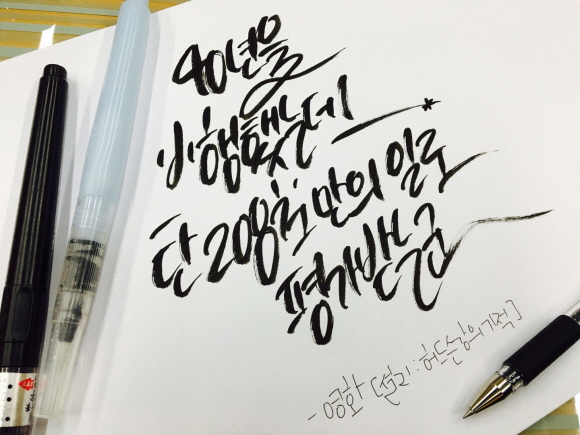 40년을
비행했는데
단 208초 만의 일로
평가받는
- 영화 [설리:허드슨강의기적]